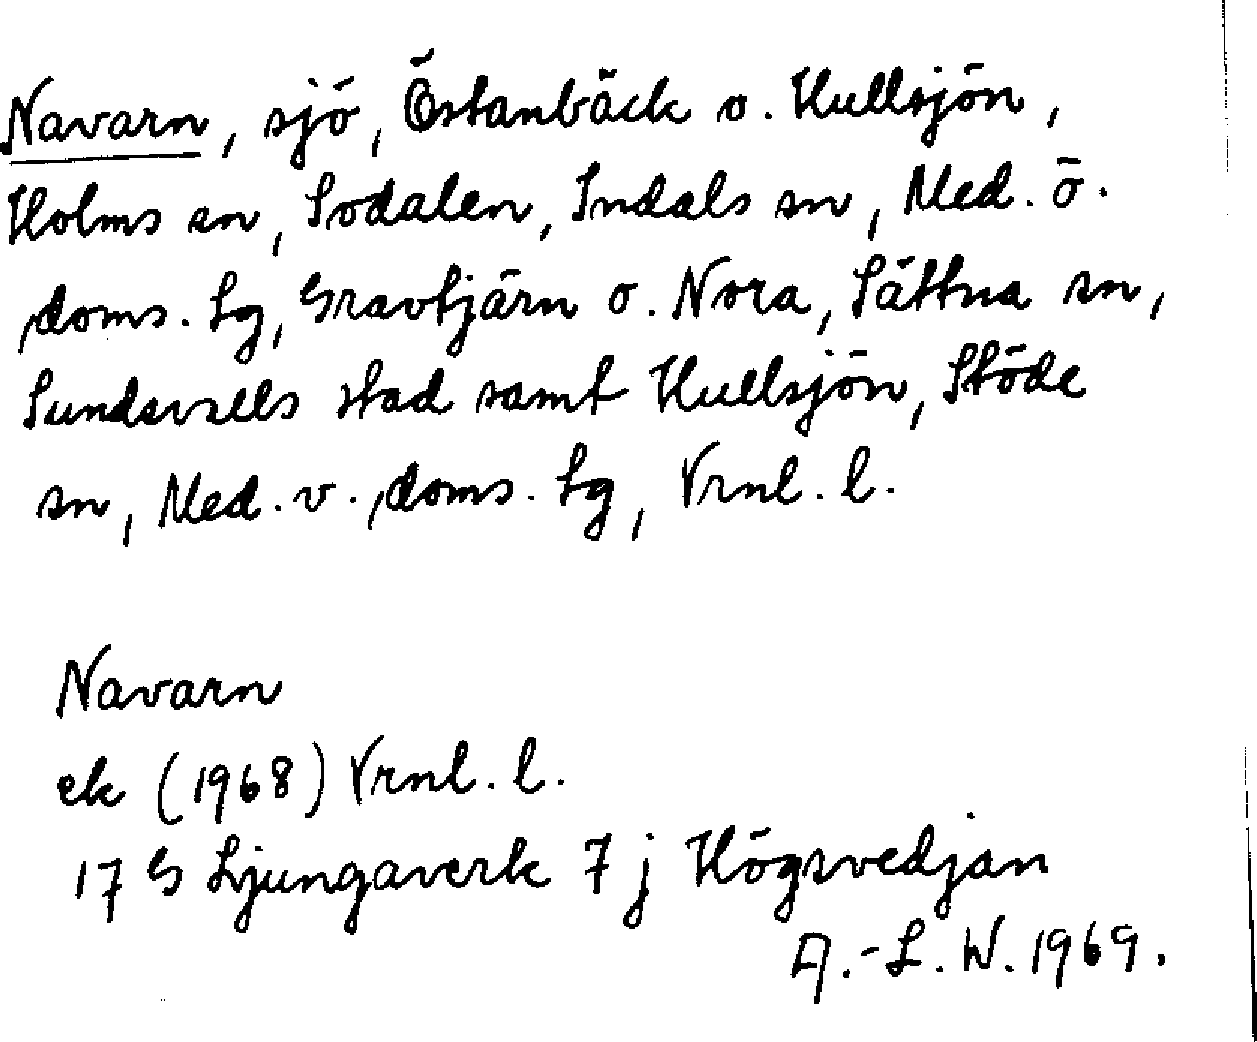 Navarn, sjö, Östanbäck o. Hullsjön,
Holms sn, Sodalen, Indals sn, Med. ö.
doms. lg, Gravtjärn o. Nora, Sättna sn,
Sundsvalls stad samt Hullsjön, Stöde
sn, Med. v. doms. lg, Vrnl. l.
Navarn
ek (1968) Vrnl. l.
17 G Ljungaverk 7 j Högsvedjan
A.-L. W. 1969.